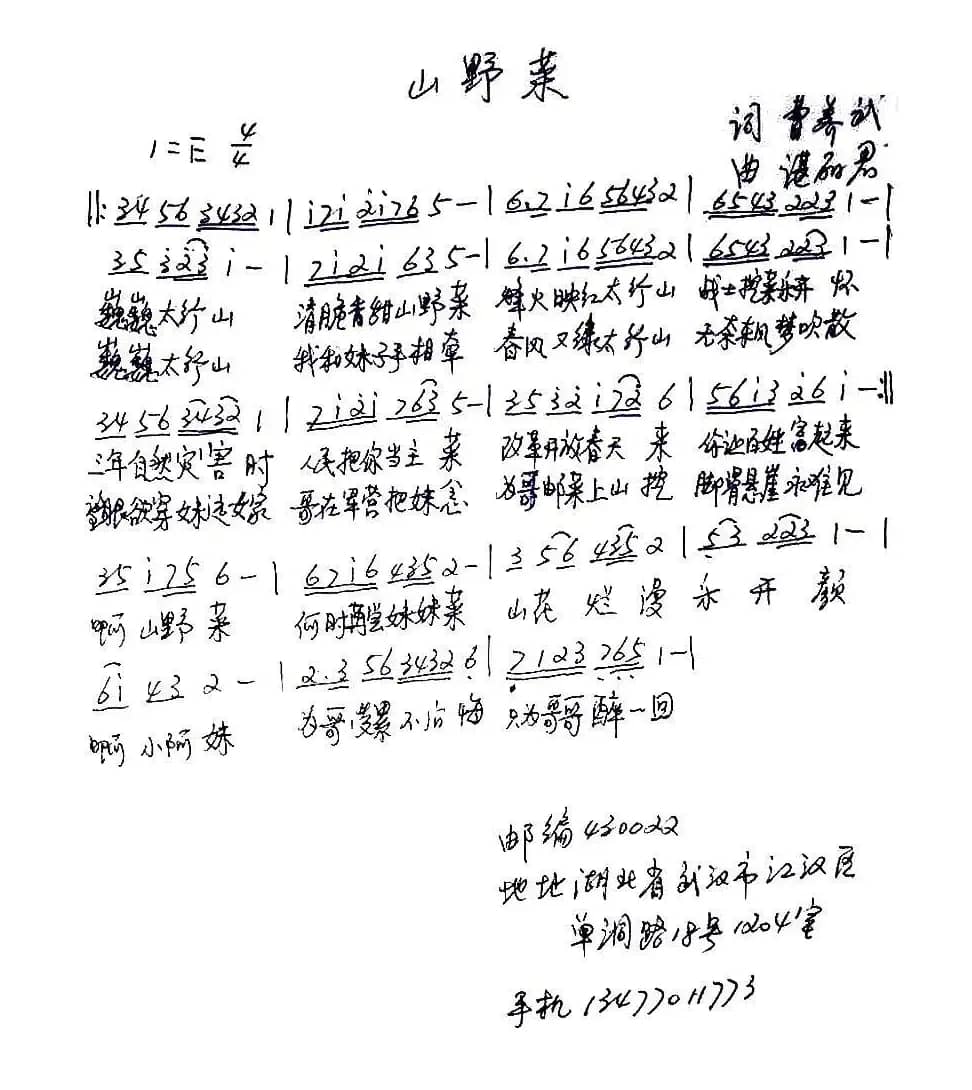 山野菜
1=E 4/4
词 曹
曲 谌丽君
‖: 34 56 3432 1 | i7i 2i76 5 - | 6.7 i6 56432 | 6543 223 1 - |
35 323 i - | 7i2i 635 - | 6.7 i6 56432 | 6543 223 1 - |
巍巍太行山 清脆香甜山野菜 烽火映红太行山 战士挖菜乐开怀
巍巍太行山 我和妹子手相牵 春风又绿太行山 无奈东风梦吹散
34 56 3432 1 | 7i2i 763 5 - | 3532 i72 6 | 56i3 26 i - :‖
三年自然灾害时 人民把你当主菜 改革开放春天来 你让百姓富起来
望眼欲穿妹远嫁 哥在军营把妹念 为哥邮菜上山挖 脚滑悬崖永难见
35 i75 6 - | 67i6 4352 - | 3 56 435 2 | 53 223 1 - |
啊 山野菜 何时再尝妹妹菜 山花烂漫永开颜
6i 43 2 - | 2.3 56 34326 | 7123 765 1 - |
啊 小阿妹 为哥受累不后悔 只为哥哥醉一回
邮编 430022
地址 湖北省武汉市江汉区
单洞路18号1204室
手机 13477011773